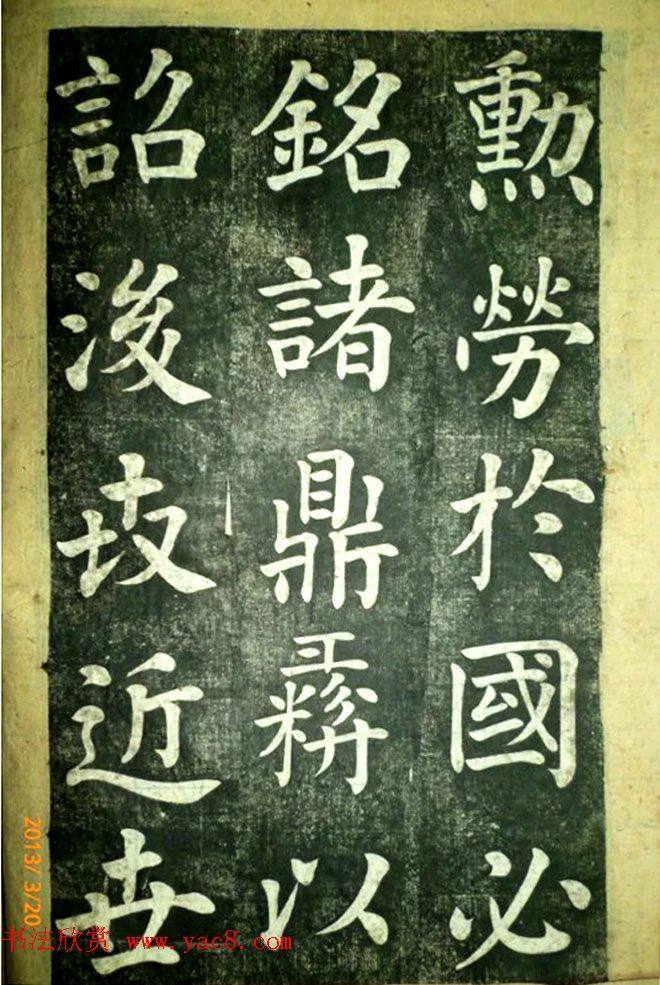 勳勞於國必
銘諸鼎彝以
詔後近世
2013/ 3/20
书法欣赏 www.yac8.com